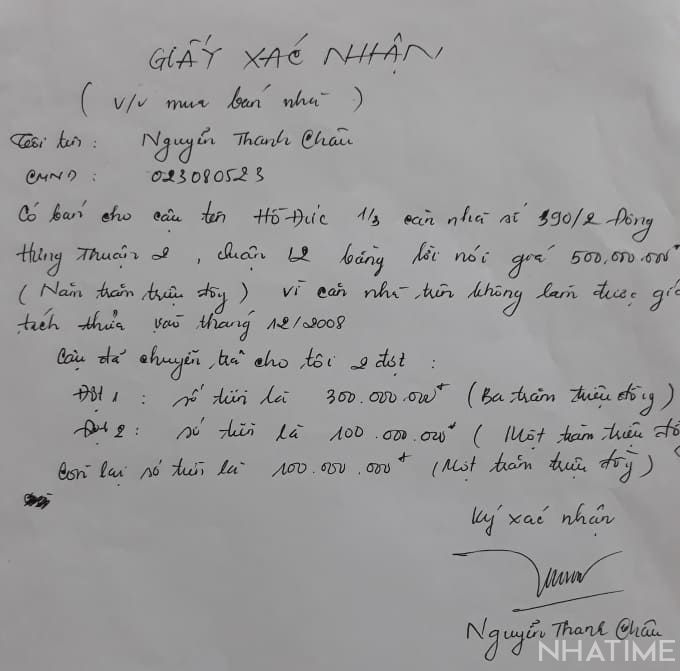 GIẤY XÁC NHẬN
( V/v mua bán nhà )
Tôi tên : Nguyễn Thanh Châu
CMND : 023080523
Có bán cho cậu tên Hồ Đức 1/3 căn nhà số 390/2 Đông
Hưng Thuận 2 , Quận 12 bằng lời nói giá 500,000.000đ
( Năm trăm triệu đồng ) vì căn nhà trên không làm được giấ
tách thửa vào tháng 12/2008
Cậu đã chuyển trả cho tôi 2 đợt :
Đợt 1 : số tiền là 300.000.000đ (Ba trăm triệu đồng)
Đợt 2 : số tiền là 100.000.000đ ( Một trăm triệu đồ
Còn lại số tiền là 100.000.000đ (Một trăm triệu đồng)
Ký xác nhận
Nguyễn Thanh Châu
NHATIME